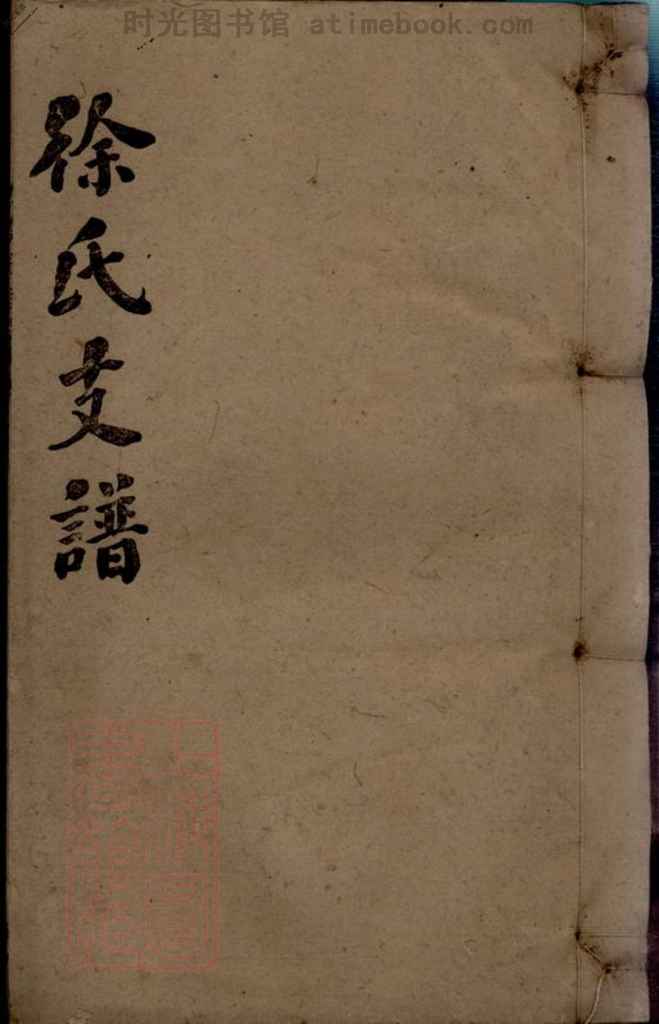 时光图书馆 atimebook.com
徐氏支譜